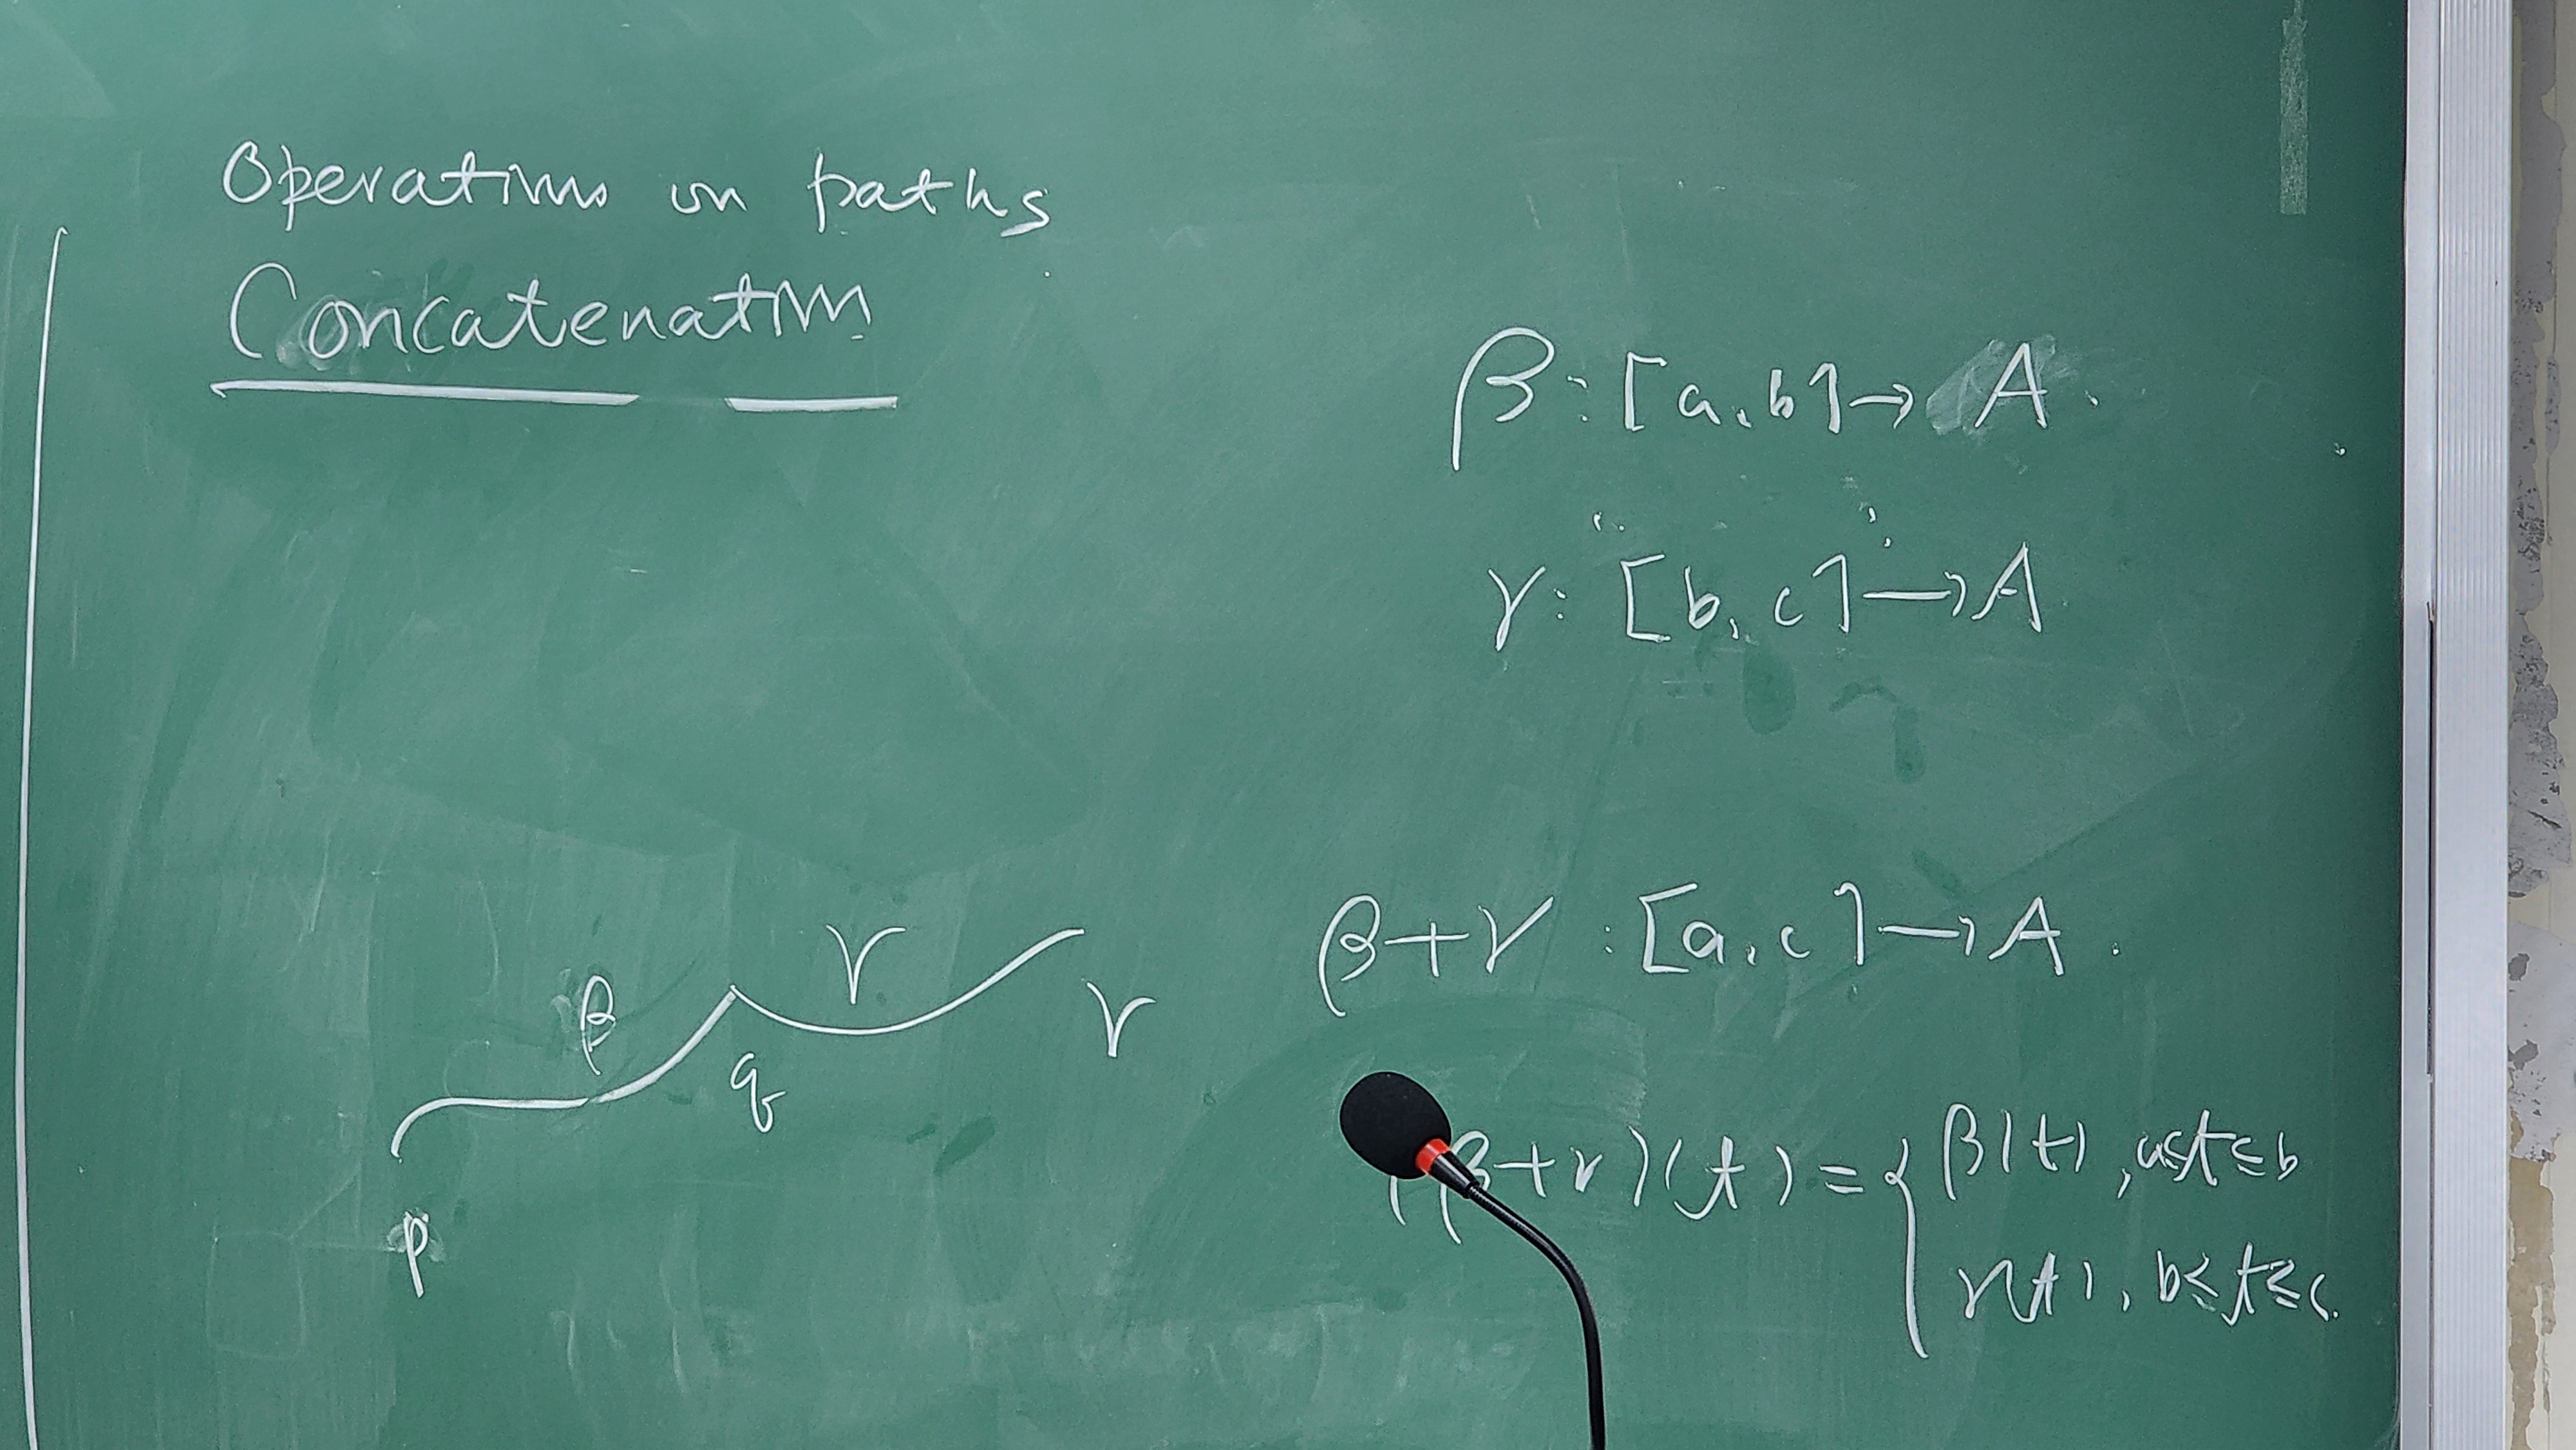 Operations on paths
Concatenation
β: [a, b] → A.
γ: [b, c] → A
β+γ : [a, c] → A.
β
γ
q
r
p
(β+γ)(t) = { β(t), a≤t≤b
γ(t), b≤t≤c.